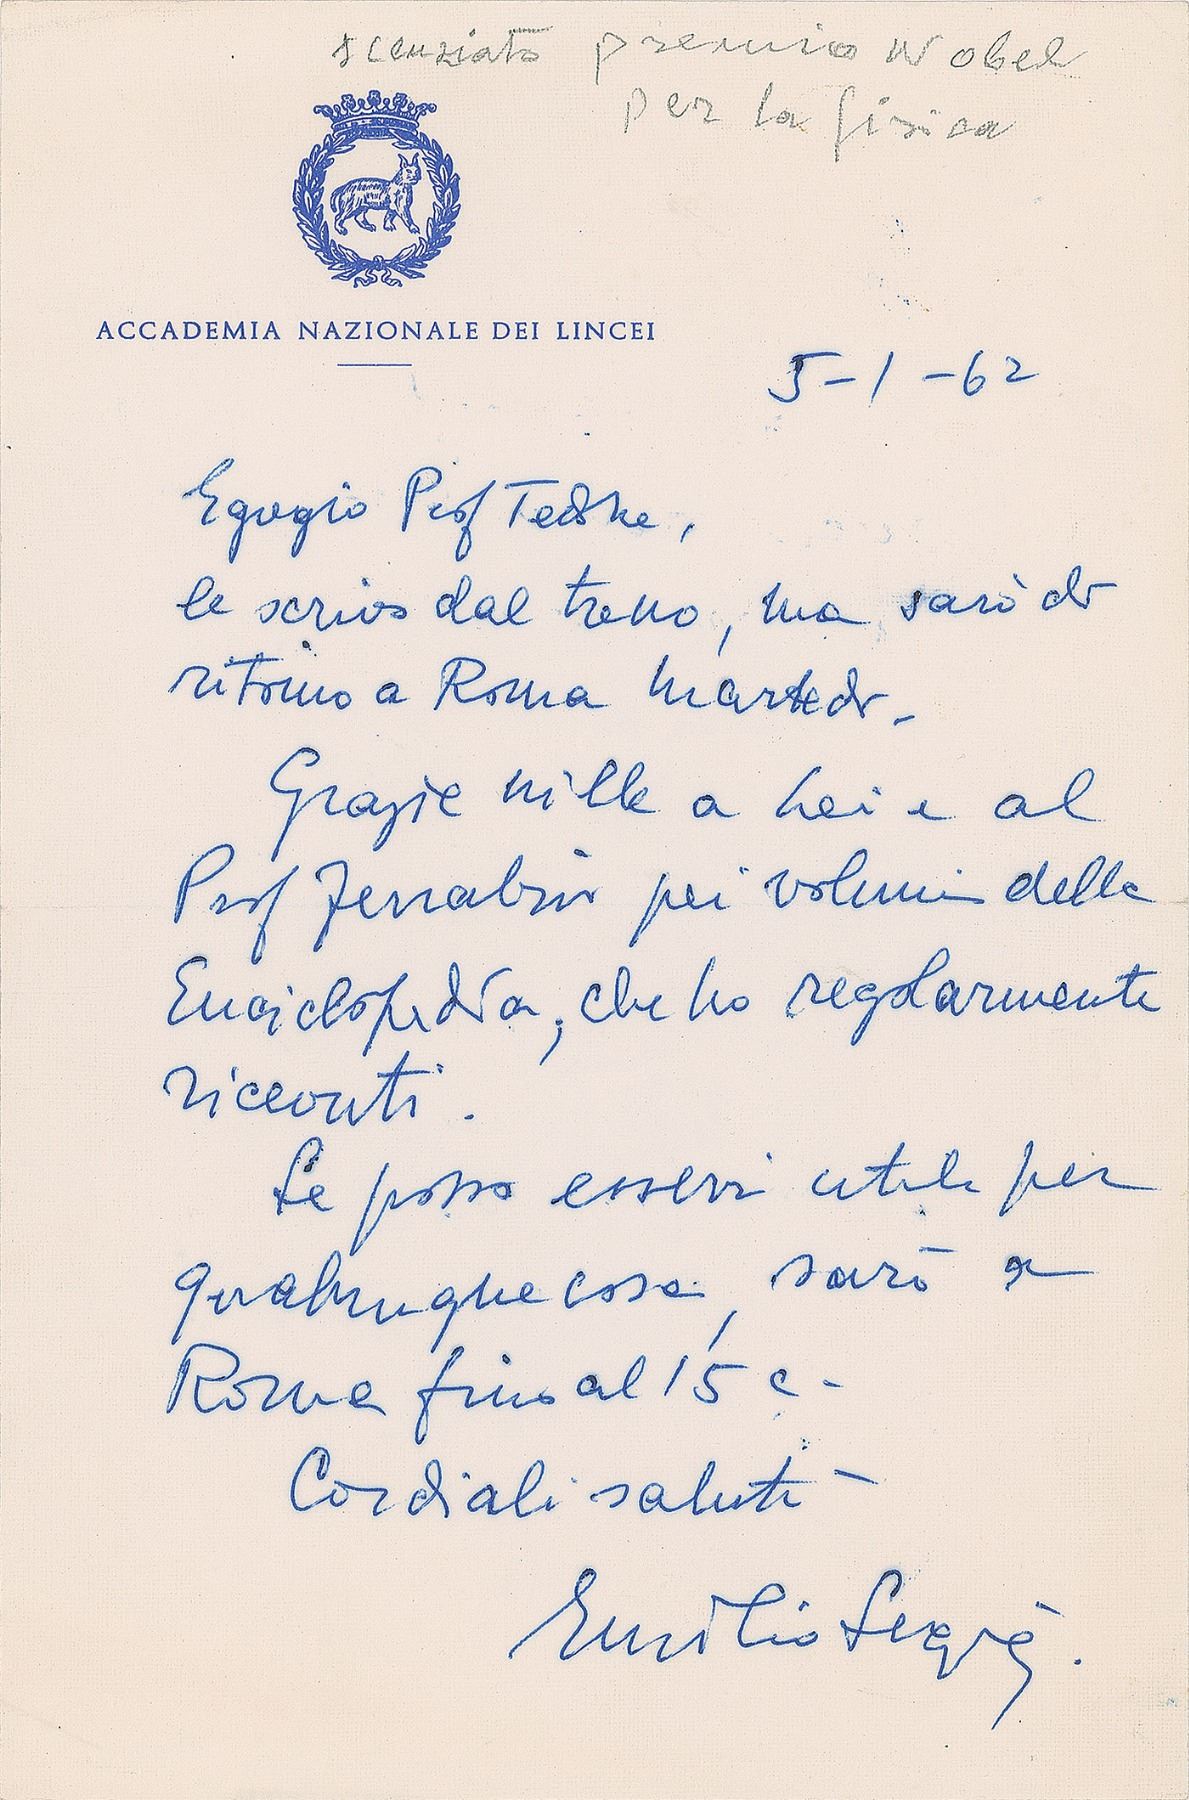 scenziato premio Nobel
per la fisica
ACCADEMIA NAZIONALE DEI LINCEI
5-1-62
Egregio Prof Tedske,
le scrivo dal treno, ma sarò di
ritorno a Roma martedì.
Grazie mille a Lei e al
Prof Ferrabino pei volumi della
Enciclopedia, che ho regolarmente
ricevuti.
Se posso esservi utile per
qualunque cosa, sarò a
Roma fino al 15 c.
Cordiali saluti
Emilio Segrè.